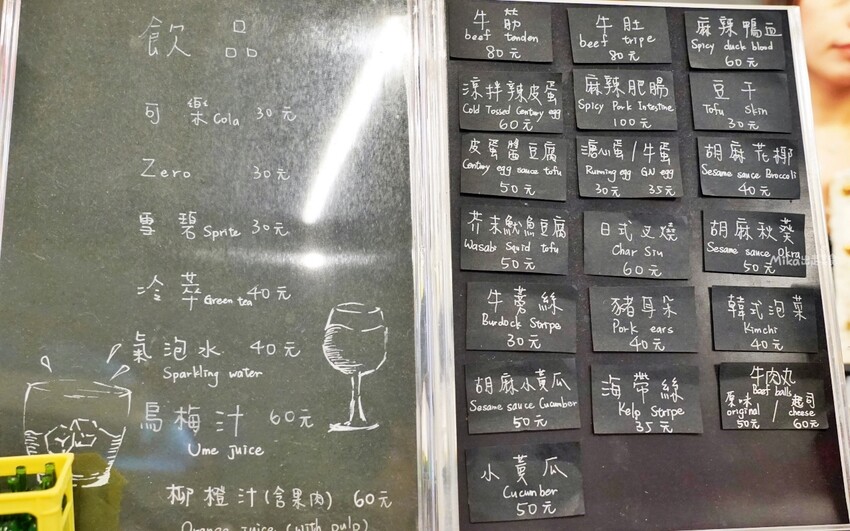 飲品
可樂 Cola 30元
Zero 30元
雪碧 Sprite 30元
冷萃 Green tea 40元
氣泡水 40元
Sparkling water
烏梅汁 60元
Ume juice
柳橙汁(含果肉) 60元
Orange juice (with pulp)
牛筋
beef tendon
80元
牛肚
beef tripe
80元
麻辣鴨血
Spicy duck blood
60元
涼拌辣皮蛋
Cold Tossed Century egg
60元
麻辣肥腸
Spicy Pork Intestine
100元
豆干
Tofu Skin
30元
皮蛋醬豆腐
Century egg sauce tofu
50元
溏心蛋/牛蛋
Running egg GN egg
30元 35元
胡麻花椰
Sesame sauce Broccoli
40元
芥末魷魚豆腐
Wasabi Squid tofu
50元
日式叉燒
Char Siu
60元
胡麻秋葵
Sesame sauce Okra
50元
牛蒡絲
Burdock Stripe
30元
豬耳朵
Pork ears
40元
韓式泡菜
Kimchi
40元
胡麻小黃瓜
Sesame sauce Cucumber
50元
海帶絲
Kelp Stripe
35元
牛肉丸
Beef balls
原味/起司
original cheese
50元 60元
小黃瓜
Cucumber
50元